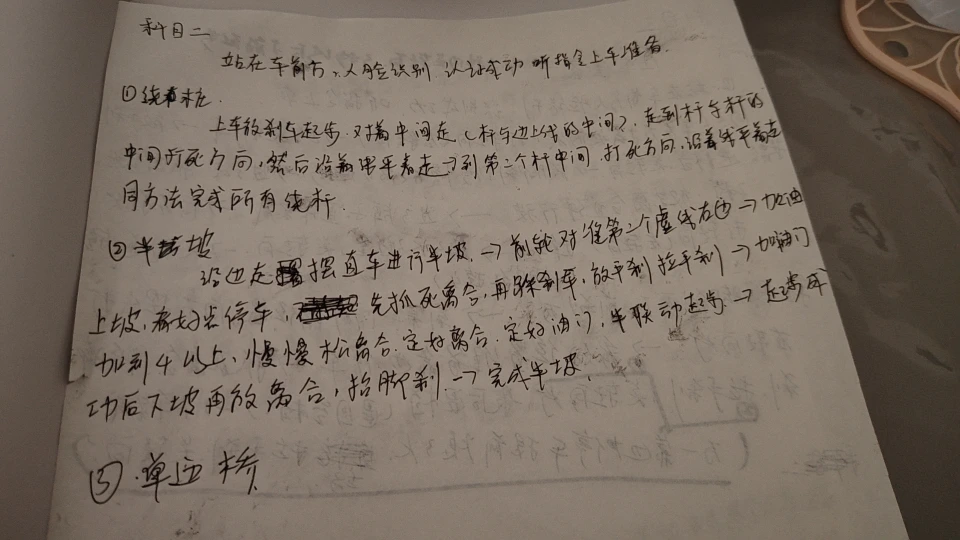 科目二
站在车前方、人脸识别 认证成功 听指令上车准备.
①绕桩.
上车放刹车起步.对着中间走(杆与边上线的中间),走到杆与杆的
中间打死方向,然后沿着 平着走→到第二个杆中间.打死方向,沿着 平着走
同方法完成所有绕杆.
②半坡
沿边走 摆直车进行半坡.→前轮对准第一个虚线右边→加油
上坡,看好点停车, 先抓死离合,再踩刹车,放平刹拉平刹→加油门
加到4以上、慢慢松离合.定好离合.定好油门,半联动起步→起步成
功后下坡再放离合,抬脚刹.→完成半坡.
③.单边桥